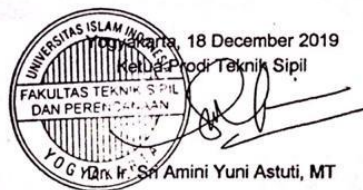 Yogyakarta, 18 December 2019
Ketua Prodi Teknik Sipil
UNIVERSITAS ISLAM INDONESIA
FAKULTAS TEKNIK SIPIL
DAN PERENCANAAN
YOGYAKARTA
Ir. Sri Amini Yuni Astuti, MT